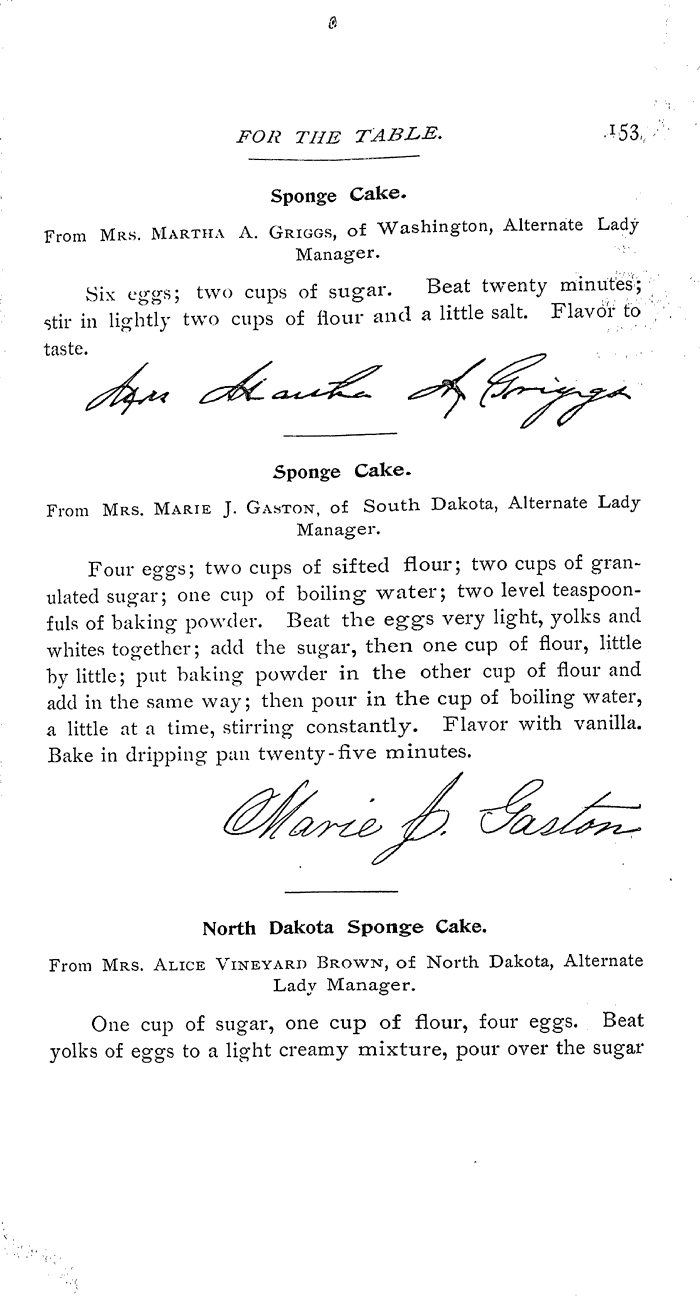 FOR THE TABLE. 153
Sponge Cake.
From MRS. MARTHA A. GRIGGS, of Washington, Alternate Lady
Manager.
Six eggs; two cups of sugar. Beat twenty minutes;
stir in lightly two cups of flour and a little salt. Flavor to
taste.
Mrs Martha A Griggs
Sponge Cake.
From MRS. MARIE J. GASTON, of South Dakota, Alternate Lady
Manager.
Four eggs; two cups of sifted flour; two cups of gran-
ulated sugar; one cup of boiling water; two level teaspoon-
fuls of baking powder. Beat the eggs very light, yolks and
whites together; add the sugar, then one cup of flour, little
by little; put baking powder in the other cup of flour and
add in the same way; then pour in the cup of boiling water,
a little at a time, stirring constantly. Flavor with vanilla.
Bake in dripping pan twenty-five minutes.
Marie J. Gaston
North Dakota Sponge Cake.
From MRS. ALICE VINEYARD BROWN, of North Dakota, Alternate
Lady Manager.
One cup of sugar, one cup of flour, four eggs. Beat
yolks of eggs to a light creamy mixture, pour over the sugar